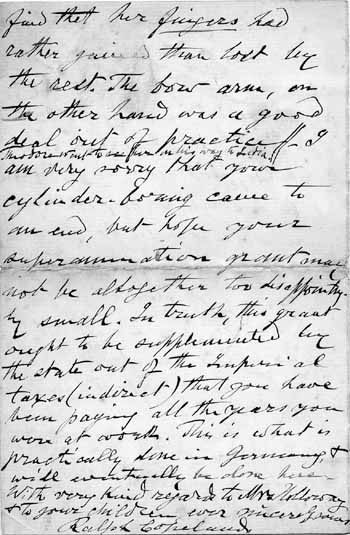 find that her fingers had
rather gained than lost by
the rest. The bow arm, on
the other hand was a good
deal out of practice // I
Theodora went to see her on his way to India
am very sorry that your
cylinder-boring came to
an end, but hope your
superannuation grant may
not be altogether too disappointing-
ly small. In truth, this grant
ought to be supplemented by
the state out of the Imperial
taxes (indirect) that you have
been paying all the years you
were at work. This is what is
practically done in Germany, &
will eventually be done here-
With very kind regards to Mrs Holloway
& to your children ever sincerely yours
Ralph Copeland